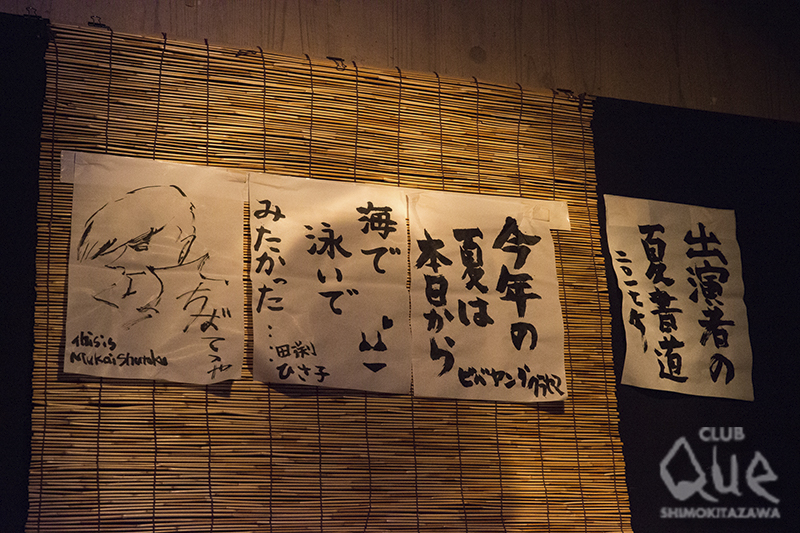 出演者の
夏書道
二〇一七年
今年の
夏は
本日から
海で
泳いで
みたかった…
田渕
ひさ子
ちばてつや
this is
MukaiShutoku
CLUB
Que
SHIMOKITAZAWA